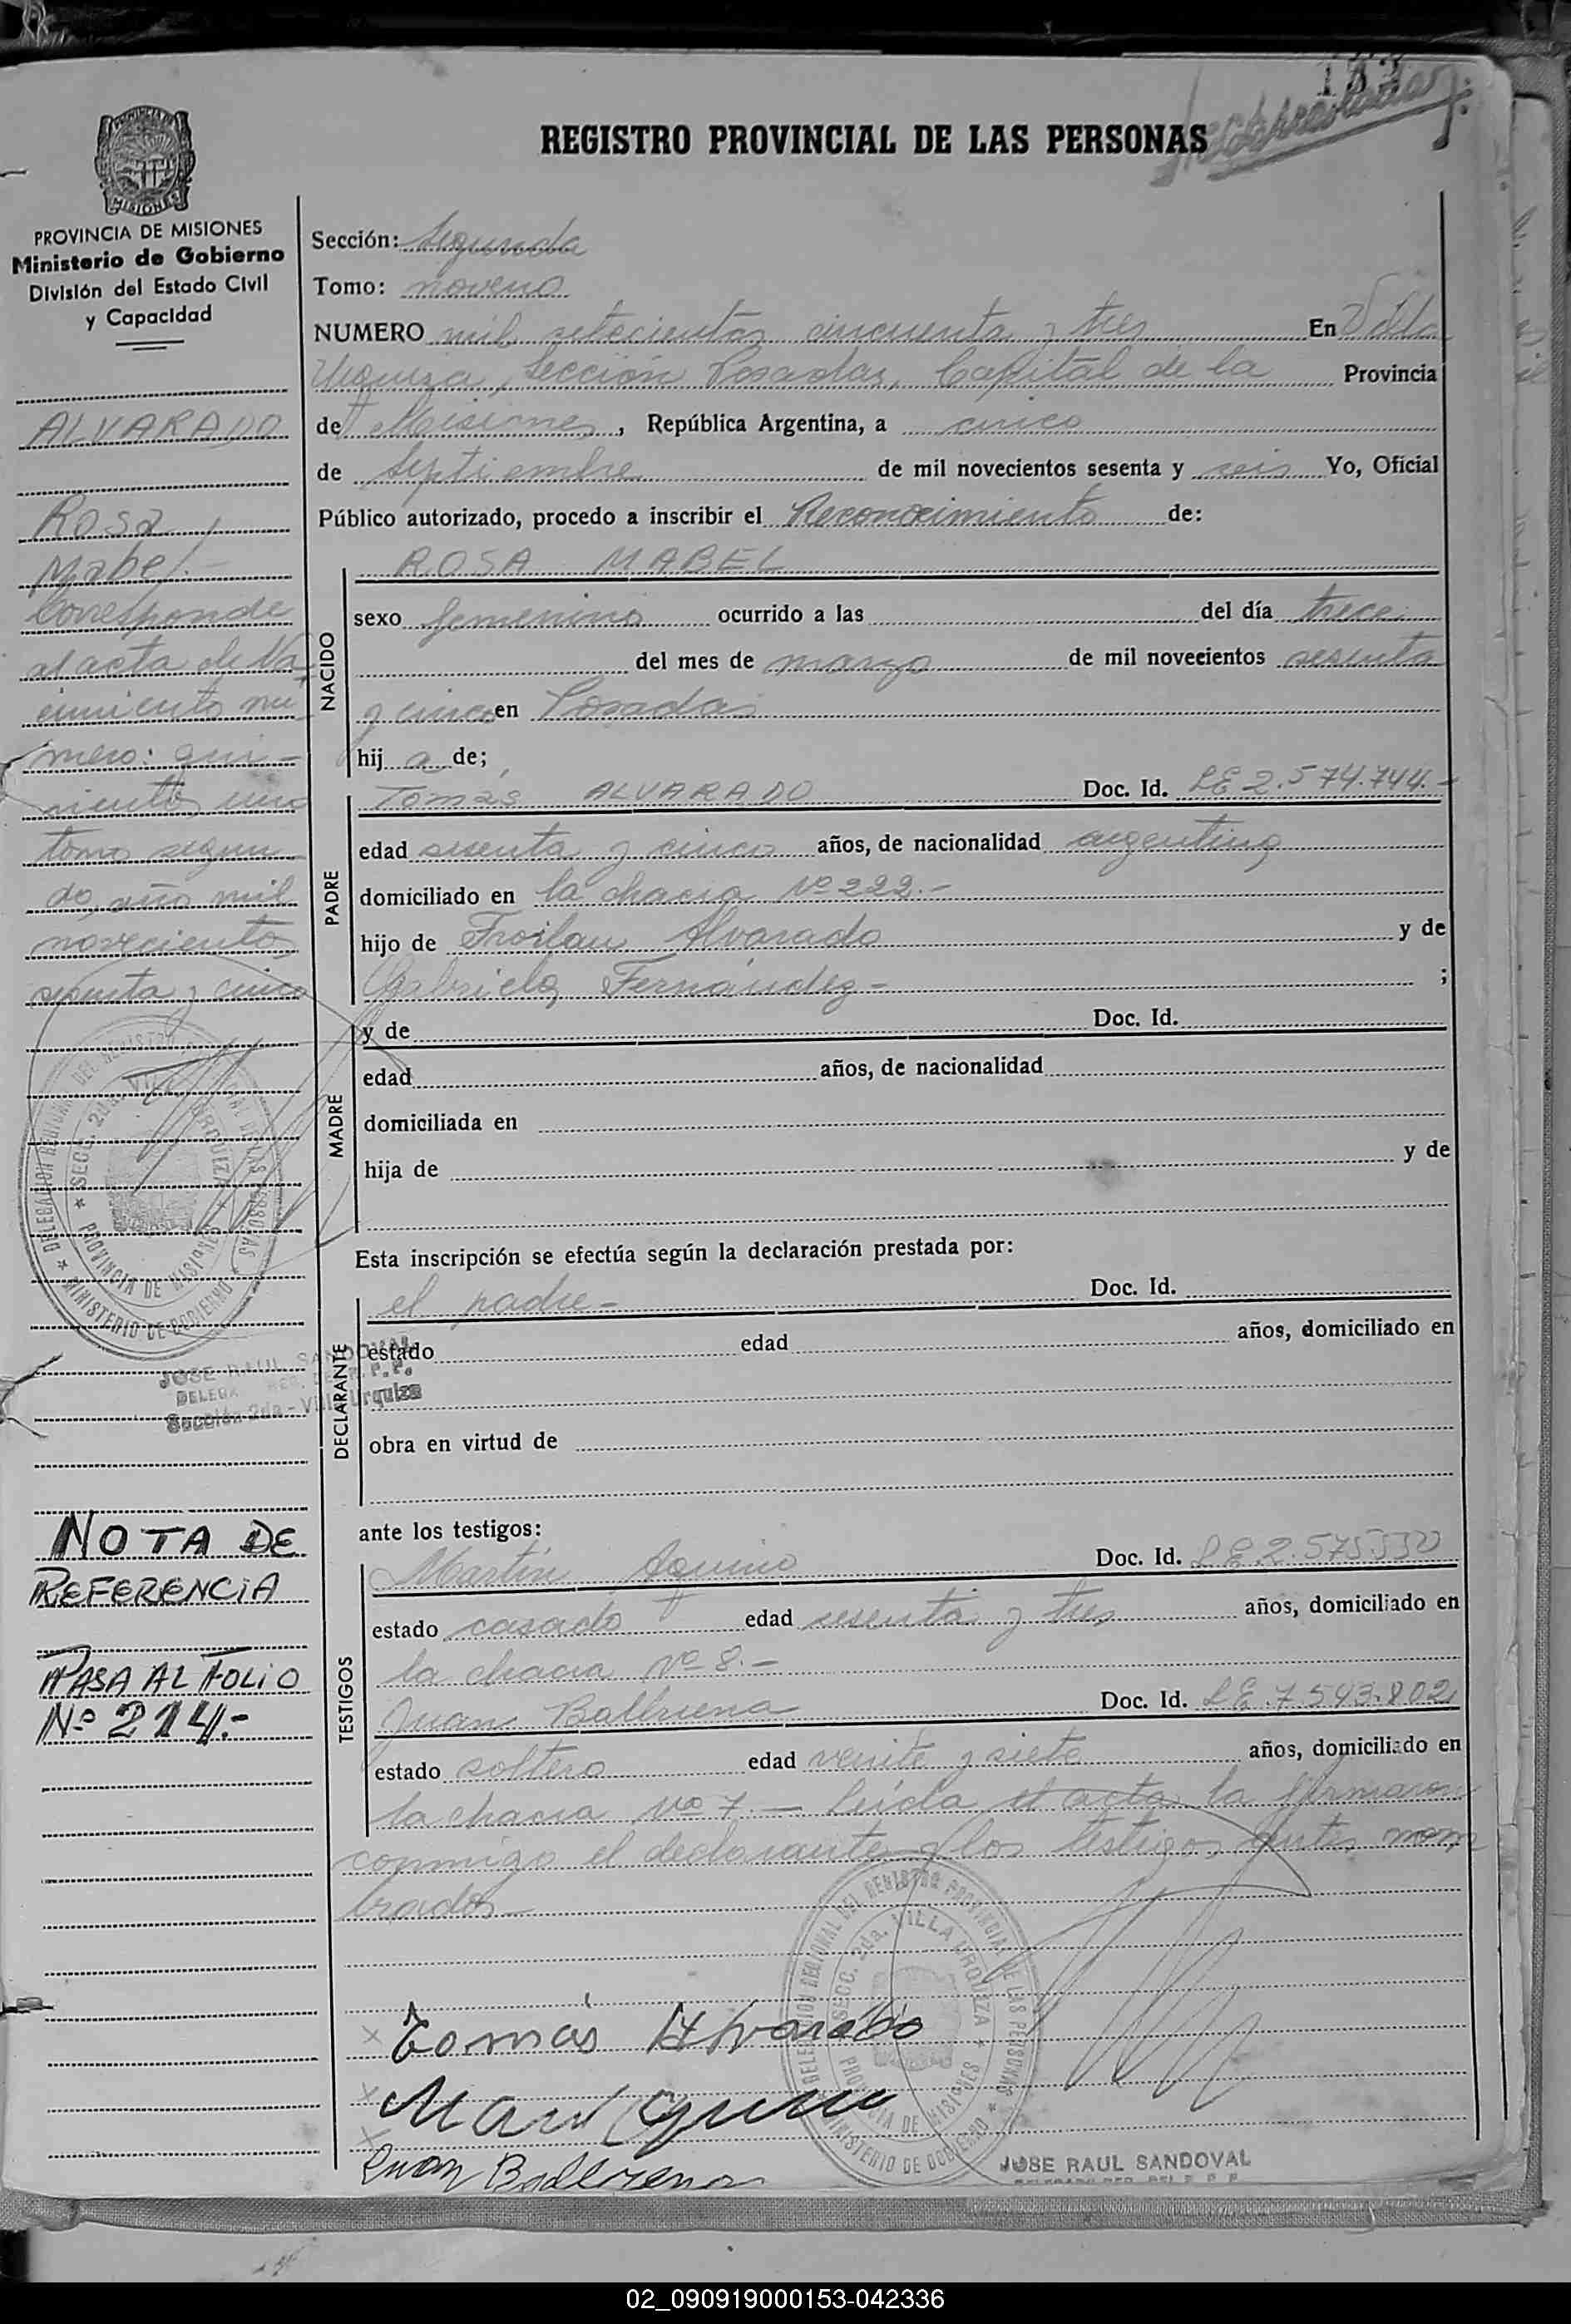 REGISTRO PROVINCIAL DE LAS PERSONAS
MISIONES
PROVINCIA DE MISIONES
Ministerio de Gobierno
División del Estado Civil
y Capacidad
ALVARADO
Rosa
Mabel.-
Corresponde
al acta de Na-
cimiento nú-
mero: qui-
nientos uno
tomo segun-
do, año mil
novecientos
sesenta y cinco
DELEGACION REGIONAL DEL REGISTRO PROVINCIAL DE LAS PERSONAS
SECC. 2da. VILLA URQUIZA
PROVINCIA DE MISIONES
MINISTERIO DE GOBIERNO
JOSE RAUL SANDOVAL
Sección 2da - Villa Urquiza
NOTA DE
REFERENCIA
PASA AL FOLIO
Nº 214.-
Sección: Segunda
Tomo: noveno
NUMERO mil setecientos cincuenta y tres En Villa
Urquiza, Sección Posadas, Capital de la Provincia
de Misiones, República Argentina, a cinco
de Septiembre de mil novecientos sesenta y seis Yo, Oficial
Público autorizado, procedo a inscribir el Reconocimiento de:
NACIDO
ROSA MABEL
sexo femenino ocurrido a las del día trece
del mes de marzo de mil novecientos sesenta
y cinco en Posadas
hija de;
PADRE
Tomás ALVARADO Doc. Id. LE 2.574.744.-
edad sesenta y cinco años, de nacionalidad argentino
domiciliado en la chacra Nº 222.-
hijo de Froilan Alvarado y de
Gabriela Fernández- ;
MADRE
y de Doc. Id.
edad años, de nacionalidad
domiciliada en
hija de y de
Esta inscripción se efectúa según la declaración prestada por:
DECLARANTE
el padre- Doc. Id.
estado edad años, domiciliado en
obra en virtud de
ante los testigos:
TESTIGOS
Martín Aquino Doc. Id. LE 2.575.550
estado casado edad sesenta y tres años, domiciliado en
la chacra Nº 8.-
Juan Balbuena Doc. Id. LE.7.543.802
estado soltero edad veinte y siete años, domiciliado en
la chacra Nº 7.- Leída el acta la firmaron
conmigo el declarante y los testigos antes nom
brados-
Tomás Alvarado
Juan Balbuena
DELEGACION REGIONAL DEL REGISTRO PROVINCIAL DE LAS PERSONAS
SECC. 2da. VILLA URQUIZA
PROVINCIA DE MISIONES
MINISTERIO DE GOBIERNO
JOSE RAUL SANDOVAL
02_090919000153-042336